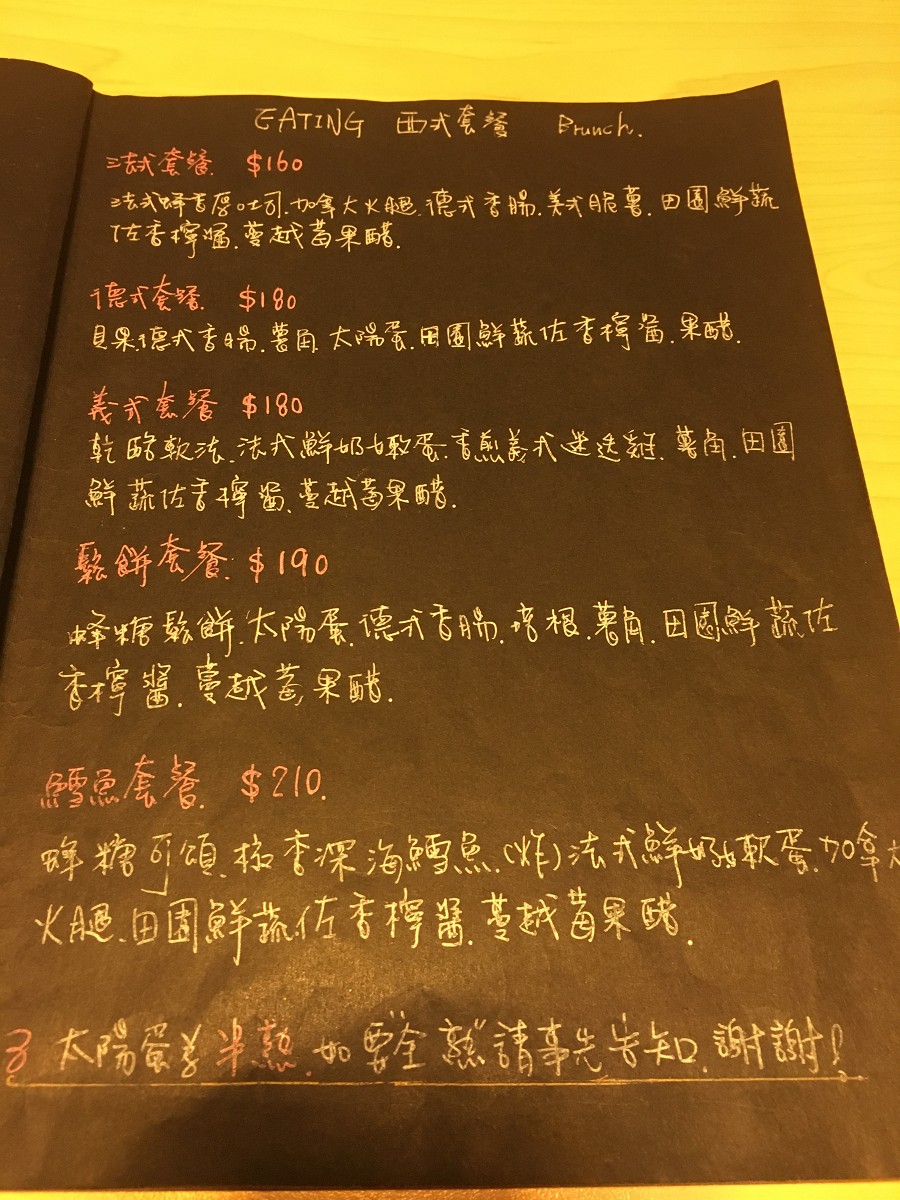 EATING 西式套餐 Brunch.
法式套餐. $160
法式蜂蜜厚吐司.加拿大火腿.德式香腸.美式脆薯.田園鮮蔬
佐香檸醬.蔓越莓果醋.
德式套餐. $180
貝果.德式香腸.薯角.太陽蛋.田園鮮蔬佐香檸醬.果醋.
義式套餐 $180
乾酪軟法.法式鮮奶軟蛋.香煎義式迷迭雞.薯角.田園
鮮蔬佐香檸醬.蔓越莓果醋.
鬆餅套餐. $190
蜂糖鬆餅.太陽蛋.德式香腸.培根.薯角.田園鮮蔬佐
香檸醬.蔓越莓果醋.
鱈魚套餐. $210.
蜂糖可頌.椒香深海鱈魚.(炸)法式鮮奶軟蛋.加拿大
火腿.田園鮮蔬佐香檸醬.蔓越莓果醋.
太陽蛋為半熟.如要全熟請事先告知.謝謝!